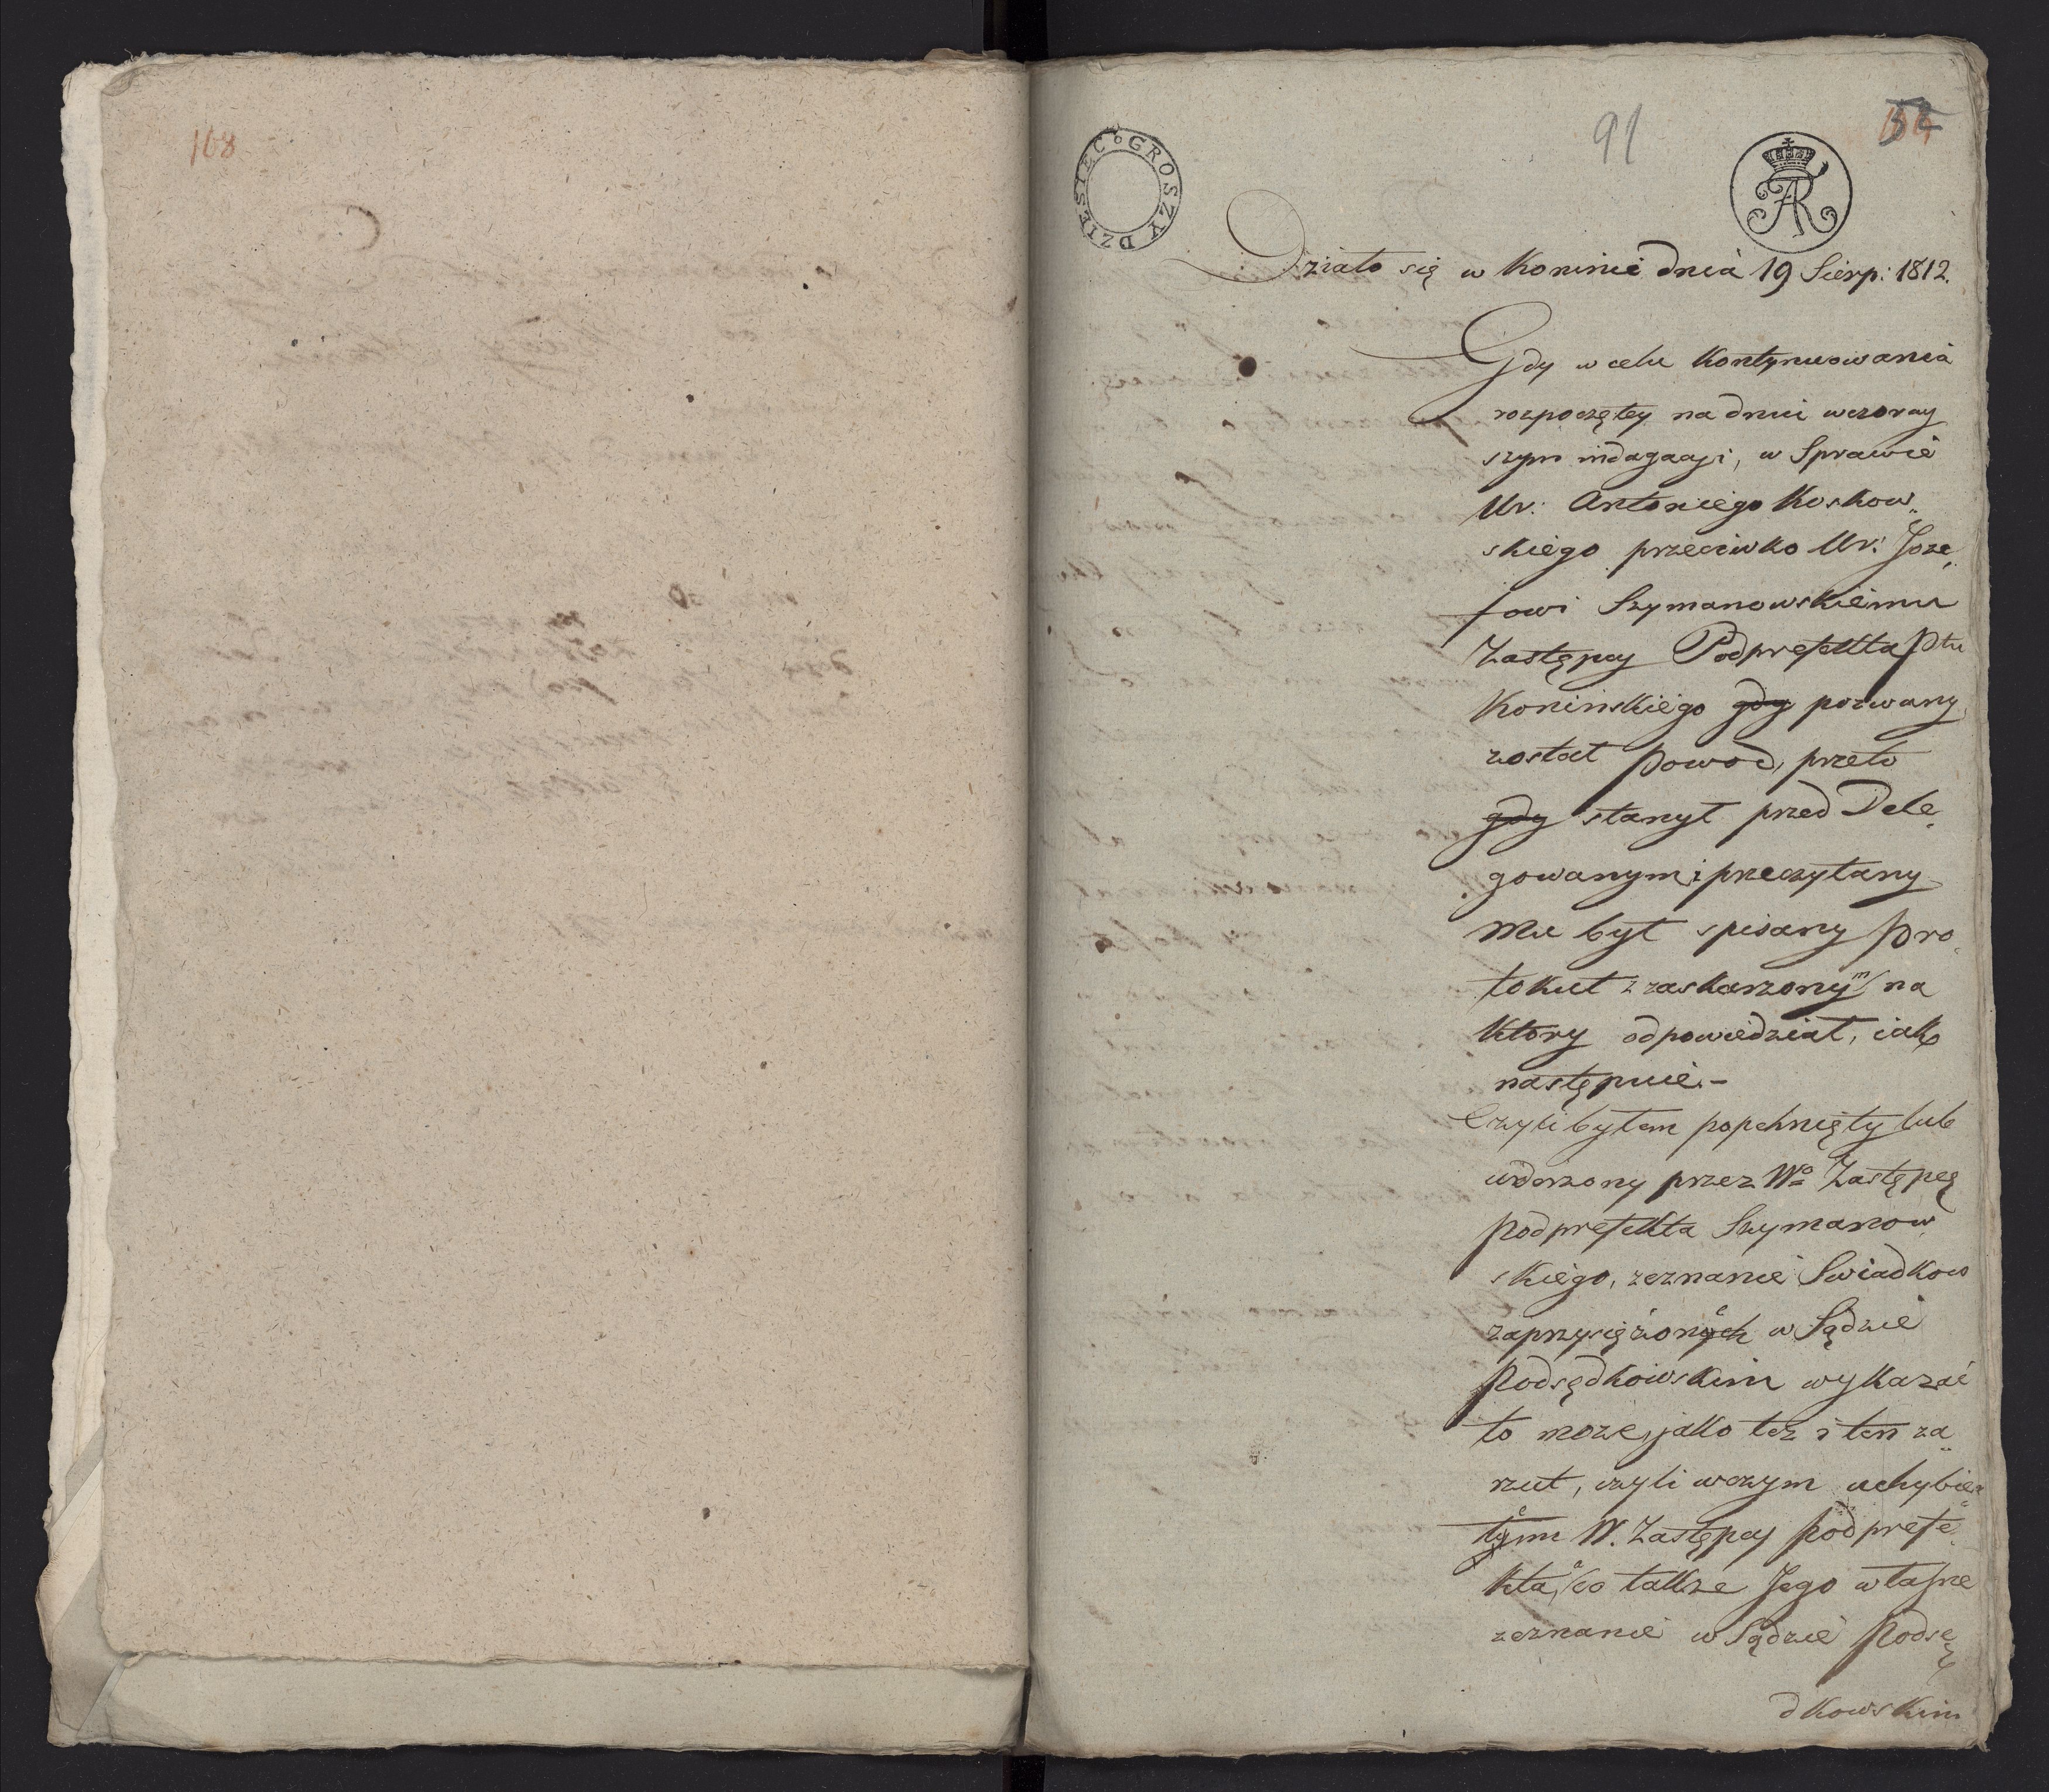 168
91
DZIESIEC GROSZY
Działo się w Koninie dnia 19 Sierp: 1812.
Gdy w celu Kontynuowania
rozpoczętey na dniu wczoray
szym indagacyi, w Sprawie
Ur: Antoniego Koskow„
skiego przeciwko Ur: Joze„
fowi Szymanowskiemu
Zastępcy Podprefekta Ptu
Konińskiego gdy pozwany
został Powod, przeto
gdy stanył przed Dele„
gowanym i przeczytany
Mu był spisany Pro„
tokuł z zaskarzonym na
Ktory odpowiedział, iako
następuie.-
Czyli byłem popchnięty lub
uderzony przez Wo Zastępcę
Podprefekta Szymanow„
skiego, zeznanie Swiadkow
zaprzysięzone w Sądzie
Podsędkowskim wykazać
to może, jako tez i ten za„
rzut, czyli w czym uchybiłe„
tym W. Zastępcy Podprefe„
kta, co także Jego własne
zeznanie w Sądzie Podsę„
dkowskim